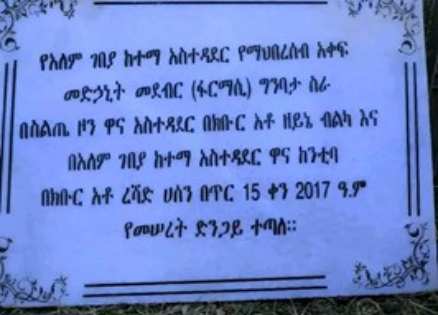 የአለም ገበያ ከተማ አስተዳደር የማህበረሰብ አቀፍ
መድኃኒት መደብር (ፋርማሲ) ግንባታ ስራ
በስልጤ ዞን ዋና አስተዳደር በክቡር አቶ ዘይኔ ብልካ እና
በአለም ገበያ ከተማ አስተዳደር ዋና ከንቲባ
በክቡር አቶ ረሻድ ሀሰን በጥር 15 ቀን 2017 ዓ.ም
የመሠረት ድንጋይ ተጣለ።